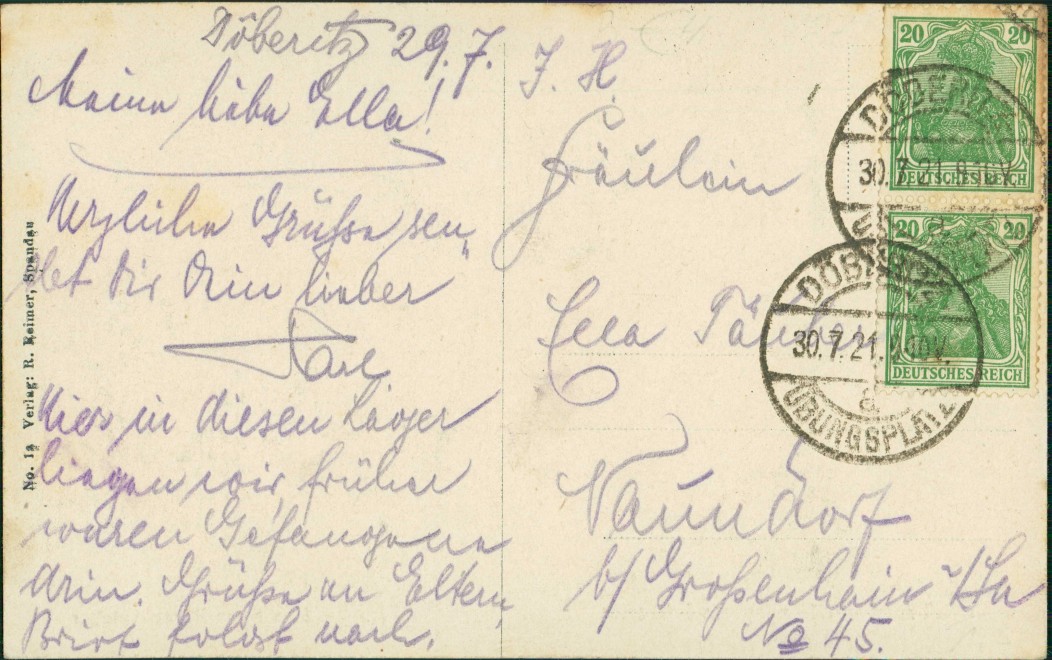 Döberitz 29.7.
Meine liebe Ella!
Herzliche Grüße sen„
det dir dein lieber
Karl
Hier in diesen Lager
liegen wir, früher
waren Gefangene
drin. Grüße an Eltern,
Brief folgt nach.
No. 13 Verlag: R. Reimer, Spandau
J. H.
Fräulein
Ella
Naundorf
b/ Großenhain i/Sa
No 45.
20 20
DEUTSCHES REICH
20 20
DEUTSCHES REICH
DÖBERITZ
30.7.21. V.
DÖBERITZ
30.7.21. V.
a
ÜBUNGSPLATZ